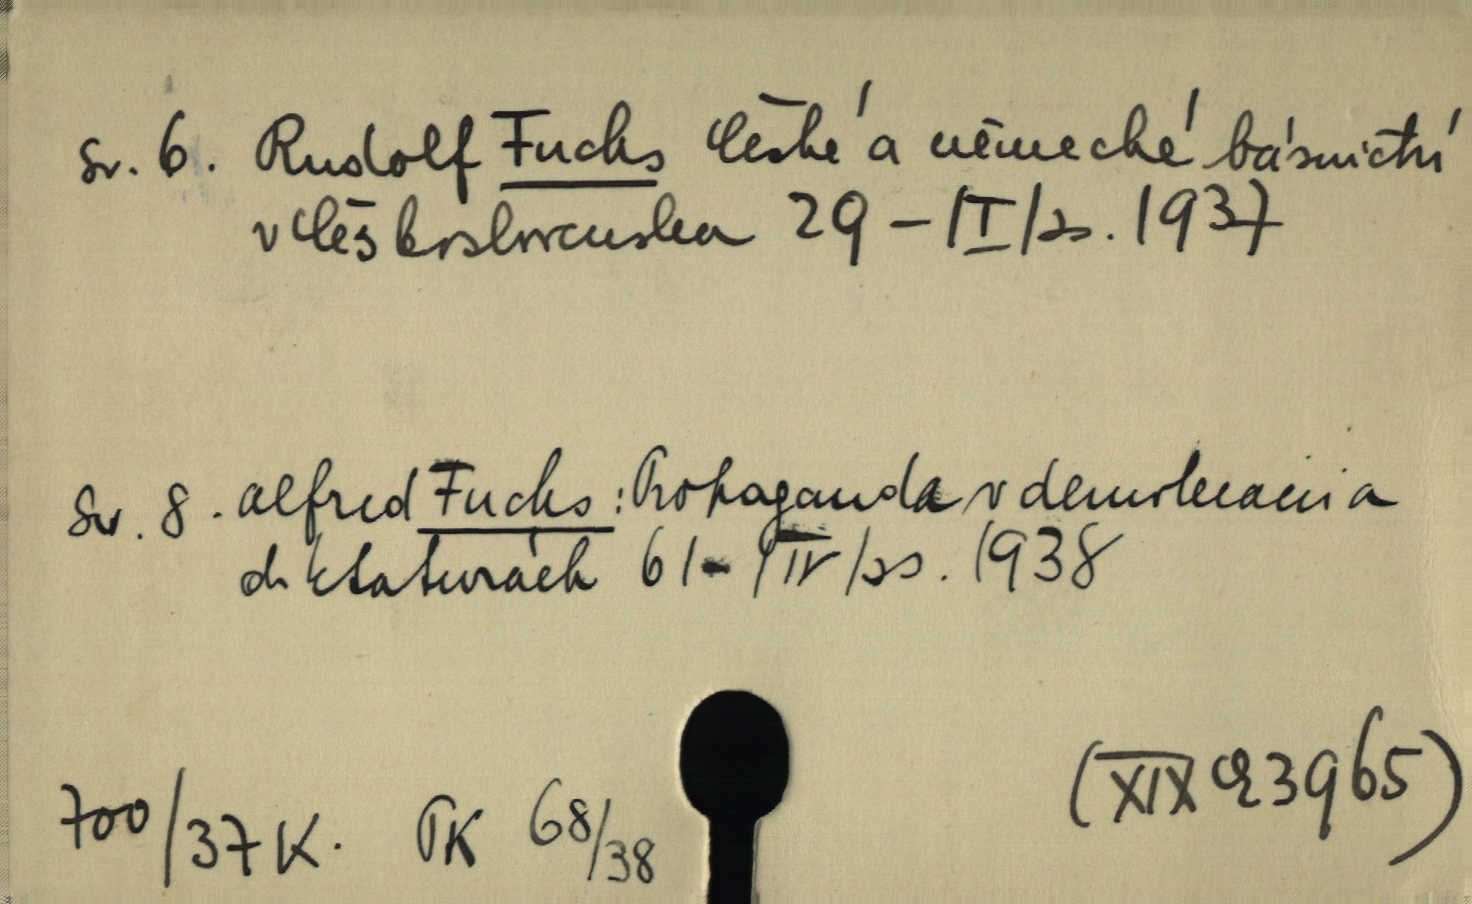 sv. 6. Rudolf Fuchs České a německé básnictví
v Československu 29 – /I/ ss. 1937
sv. 8. Alfred Fuchs: Propaganda v demokracii a
diktaturách 61 - /IV/ ss. 1938
700/37 K. PK 68/38 (XIX 23965)